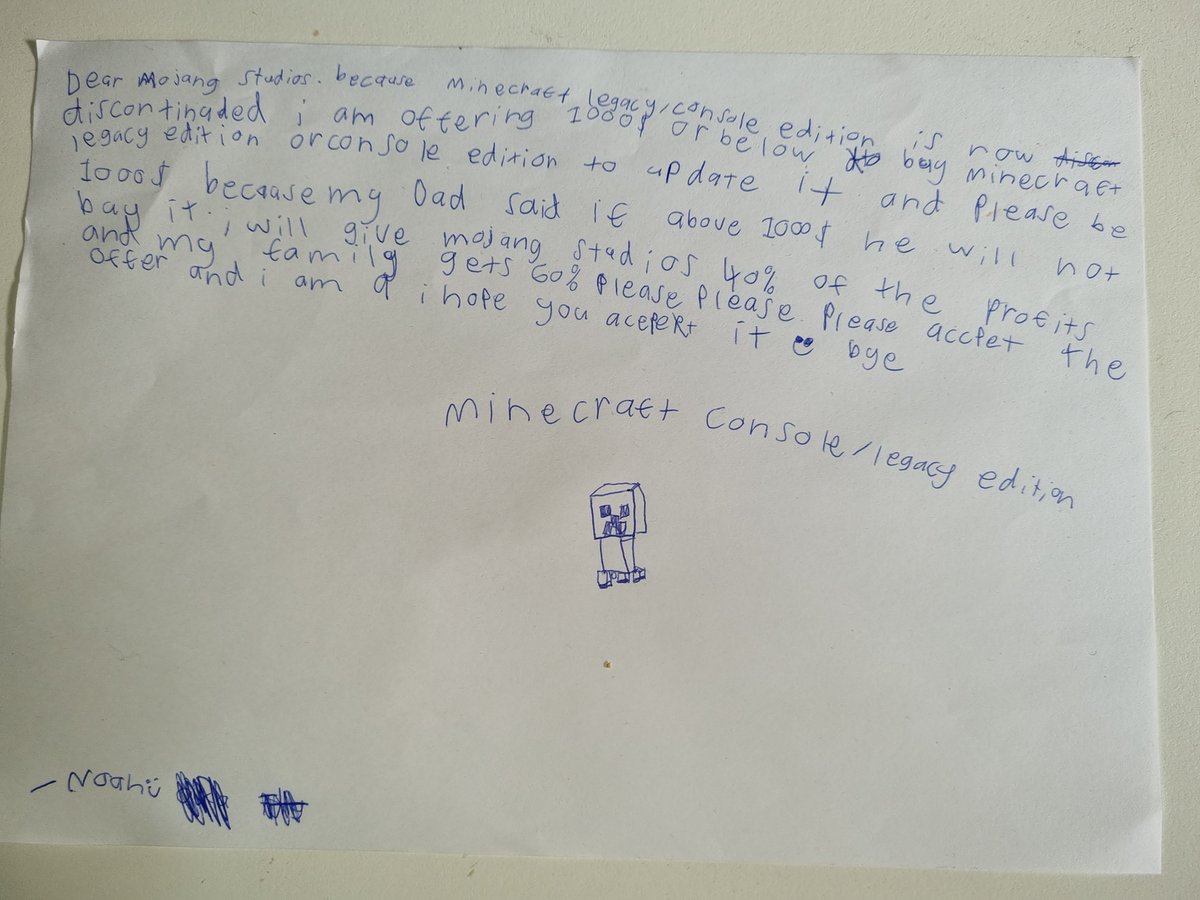 Dear Mojang Studios. because Minecraft legacy/console edition is now
discontinaded i am offering 1000$ or below to bay minecraft
legacy edition or console edition to update it and please be
1000$ because my Dad said if above 1000$ he will not
bay it. i will give mojang studios 40% of the profits
and my family gets 60% please please please accpet the
offer and i am a i hope you acepert it bye
Minecraft Console/legacy edition
- Noah